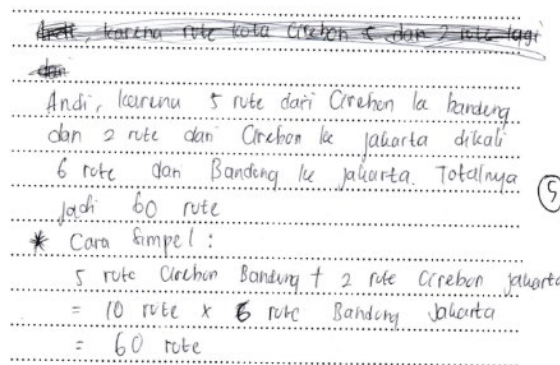 Andi, karena rute kota Cirebon 5 dan 2 rute lagi
dari
Andi, karena 5 rute dari Cirebon ke bandung
dan 2 rute dari Cirebon ke jakarta dikali
6 rute dari Bandung ke jakarta. Totalnya
jadi 60 rute
5
* Cara Simpel :
5 rute Cirebon Bandung + 2 rute Cirebon jakarta
= 10 rute x 6 rute Bandung Jakarta
= 60 rute